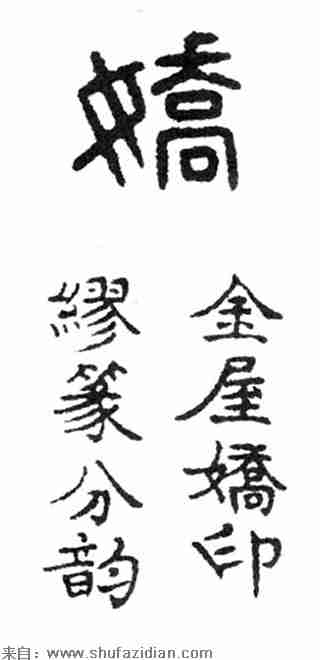 嬌
金屋嬌印
繆篆分韵
来自：www.shufazidian.com